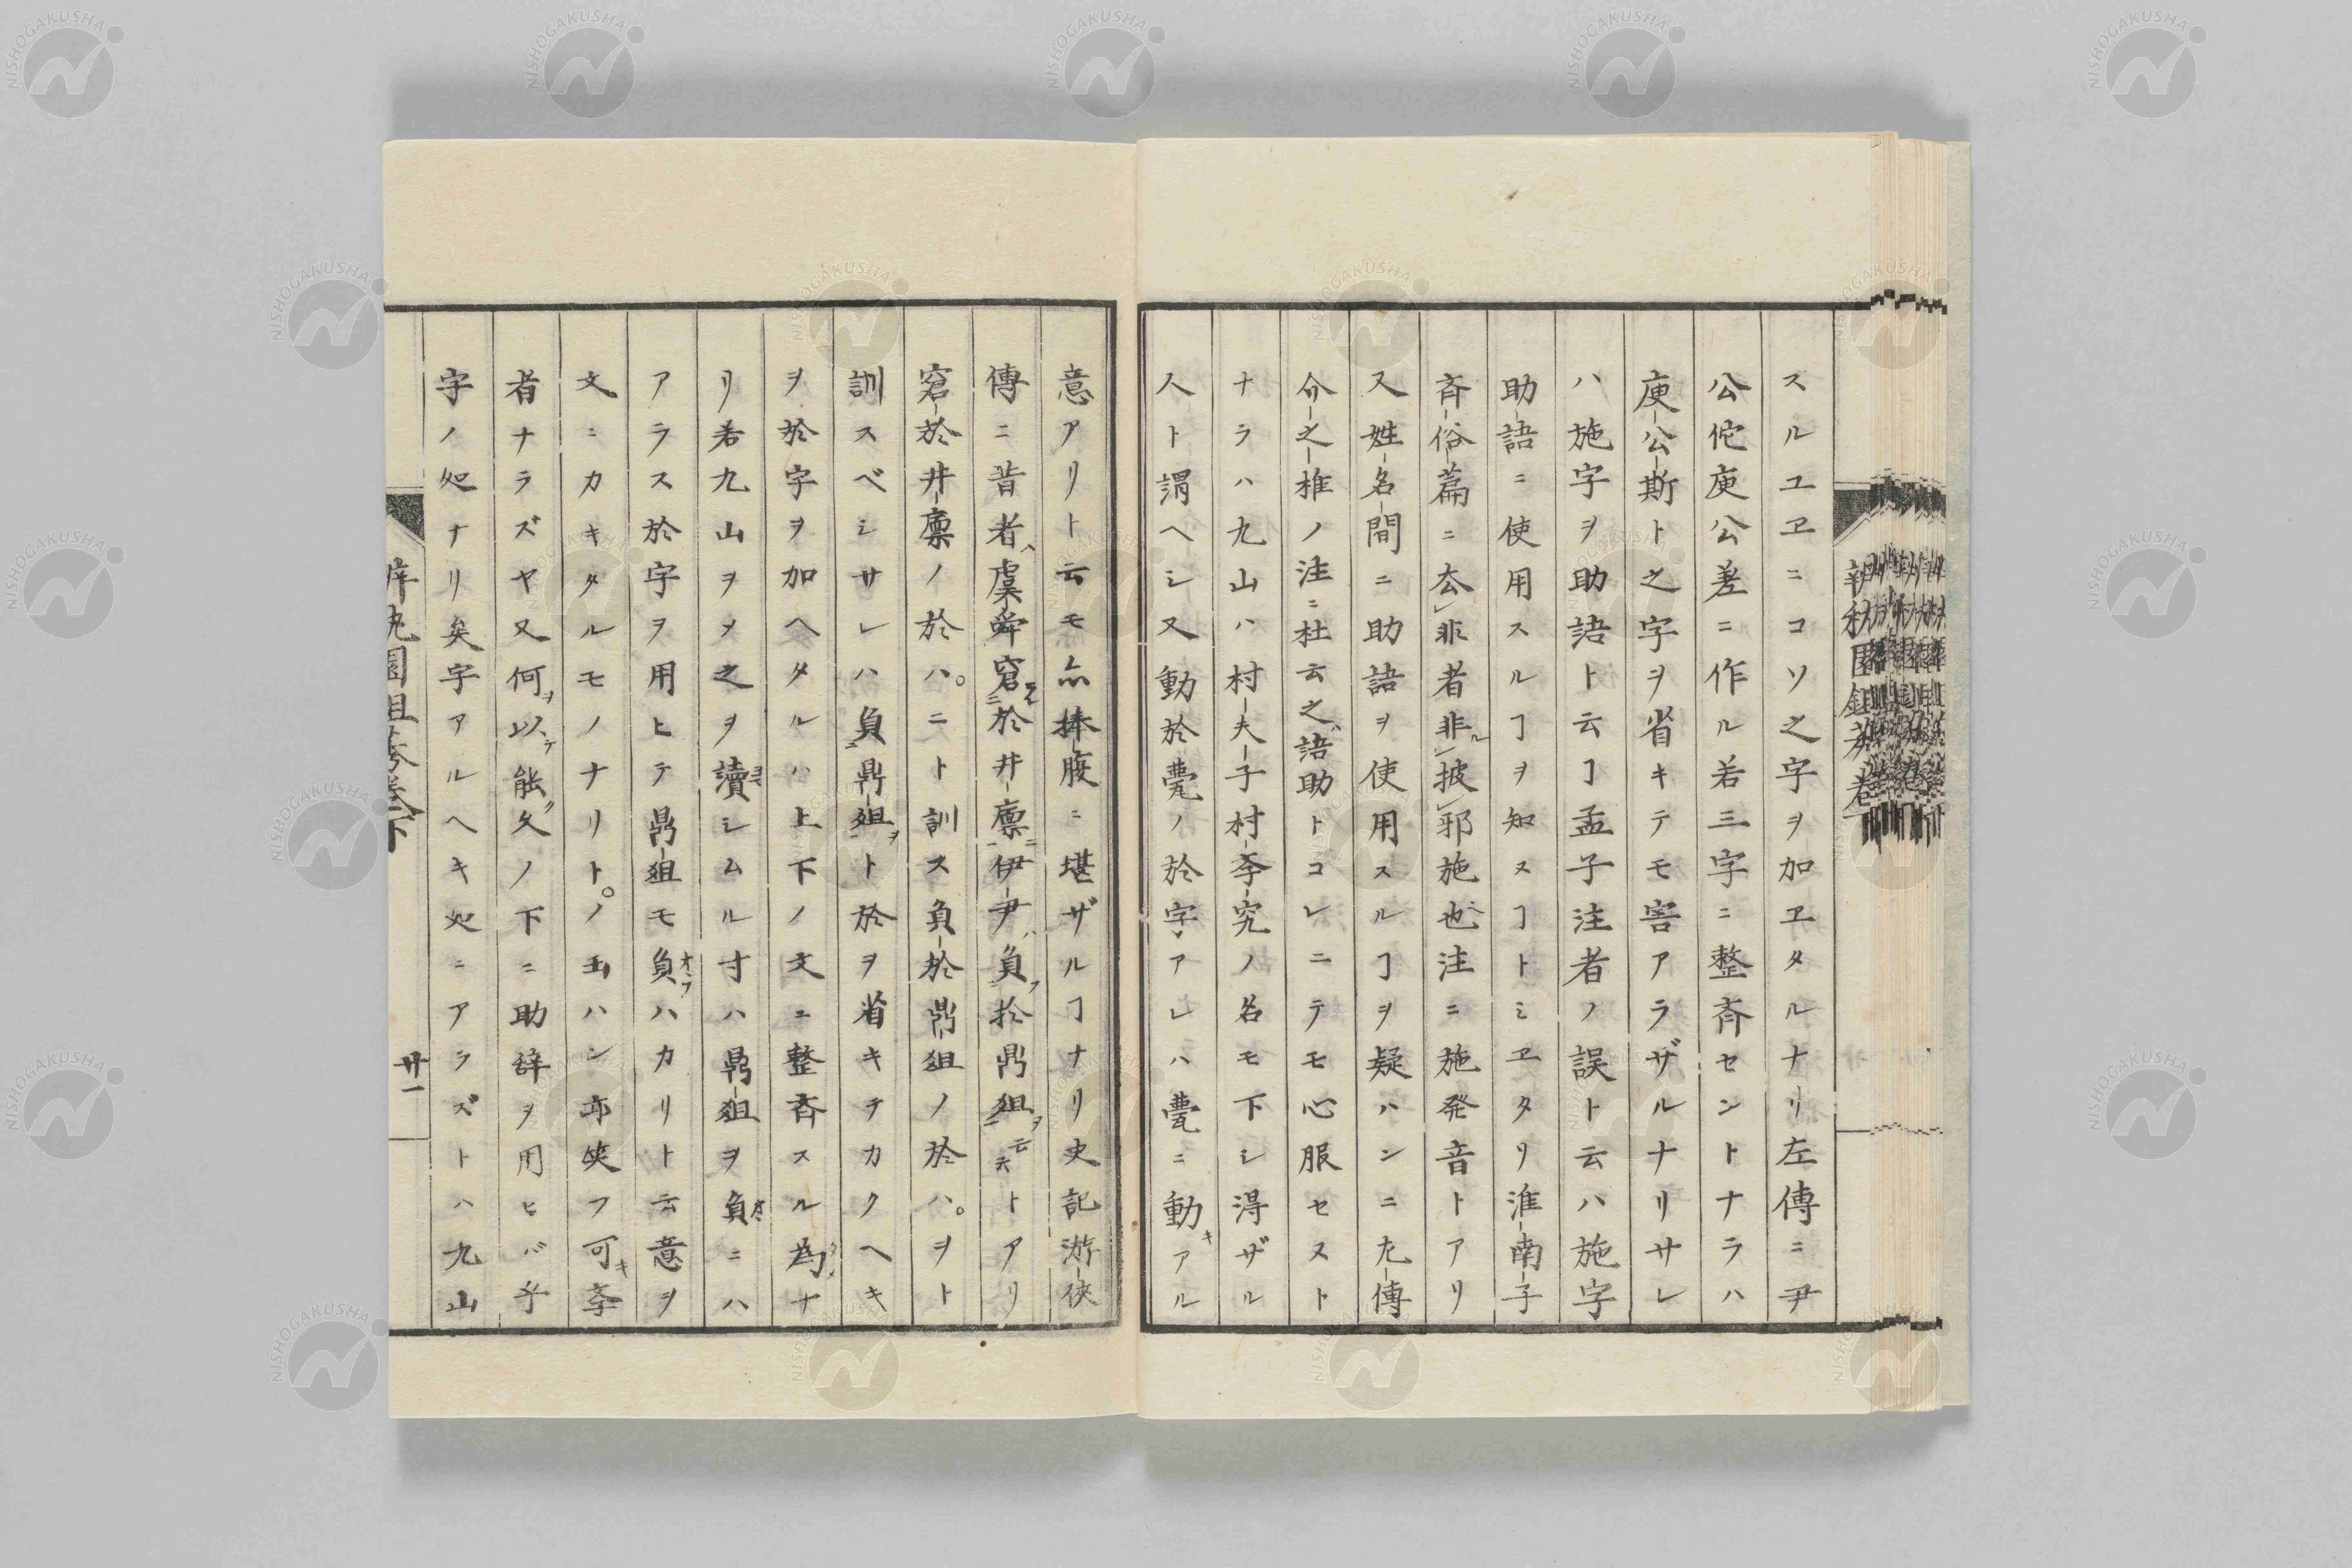 スルユヱニコソ之字ヲ加ヱタルナリ左傳ニ尹
公佗庾公差ニ作ル若三字ニ整斉セントナラハ
庾公斯ト之字ヲ省キテモ害アラザルナリサレ
ハ施字ヲ助語ト云ヿ孟子注者ノ誤ト云ハ施字
助語ニ使用スルヿヲ知ヌヿトミヱタリ淮南子
斉俗篇ニ厺非者非ル披邪施也注ニ施発音トアリ
又姓名間ニ助語ヲ使用スルヿヲ疑ハンニ左傳
介之推ノ注ニ杜云之ハ語助トコレニテモ心服セスト
ナラハ九山ハ村夫子村李究ノ名モ下シ淂ザル
人ト謂ヘシ又動於甍ノ於字アレハ甍ニ動キアル
意アリト云モ亦捧腹ニ堪ザルヿナリ史記游侠
傳ニ昔者ハ虞舜窘於井廩ニ伊尹ハ負フ於鼎俎ヲ云云トアリ
窘於井廩ノ於ハ。ニト訓ス負於鼎俎ノ於ハ。ヲト
訓スベシサレハ負ニ鼎俎ヲト於ヲ省キテカクヘキ
ヲ於字ヲ加ヘタルハ上下ノ文ニ整斉スル為メナ
リ若九山ヲメ之ヲ讀シムル寸ハ鼎俎ヲ負ニハ
アラス於字ヲ用ヒテ鼎俎モ負オフハカリト云意ヲ
文ニカキタルモノナリト。ノ玉ハン亦笑フ可キ李
者ナラズヤ又何ヲ以テ能ク久ノ下ニ助辞ヲ用ヒバ乎
字ノ処ナリ矣字アルヘキ処ニアラズトハ九山
廿一
NISHOGAKUSHA